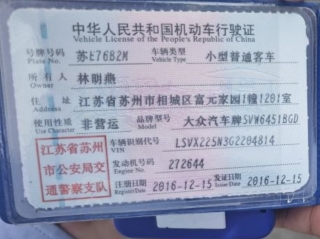 中华人民共和国机动车行驶证
Vehicle License of the People's Republic of China
号牌号码 苏E76B2M 车辆类型 小型普通客车
Plate No. Vehicle Type
所有人 林明燕
Owner
住址 江苏省苏州市相城区富元家园1幢1201室
Address
使用性质 非营运 品牌型号 大众汽车牌SVW6451BGD
Use Character Model
江苏省苏州市公安局交通警察支队
车辆识别代号 LSVX225N3G2204814
VIN
发动机号码 272644
Engine No.
注册日期 2016-12-15 发证日期 2016-12-15
Register Date Issue Date